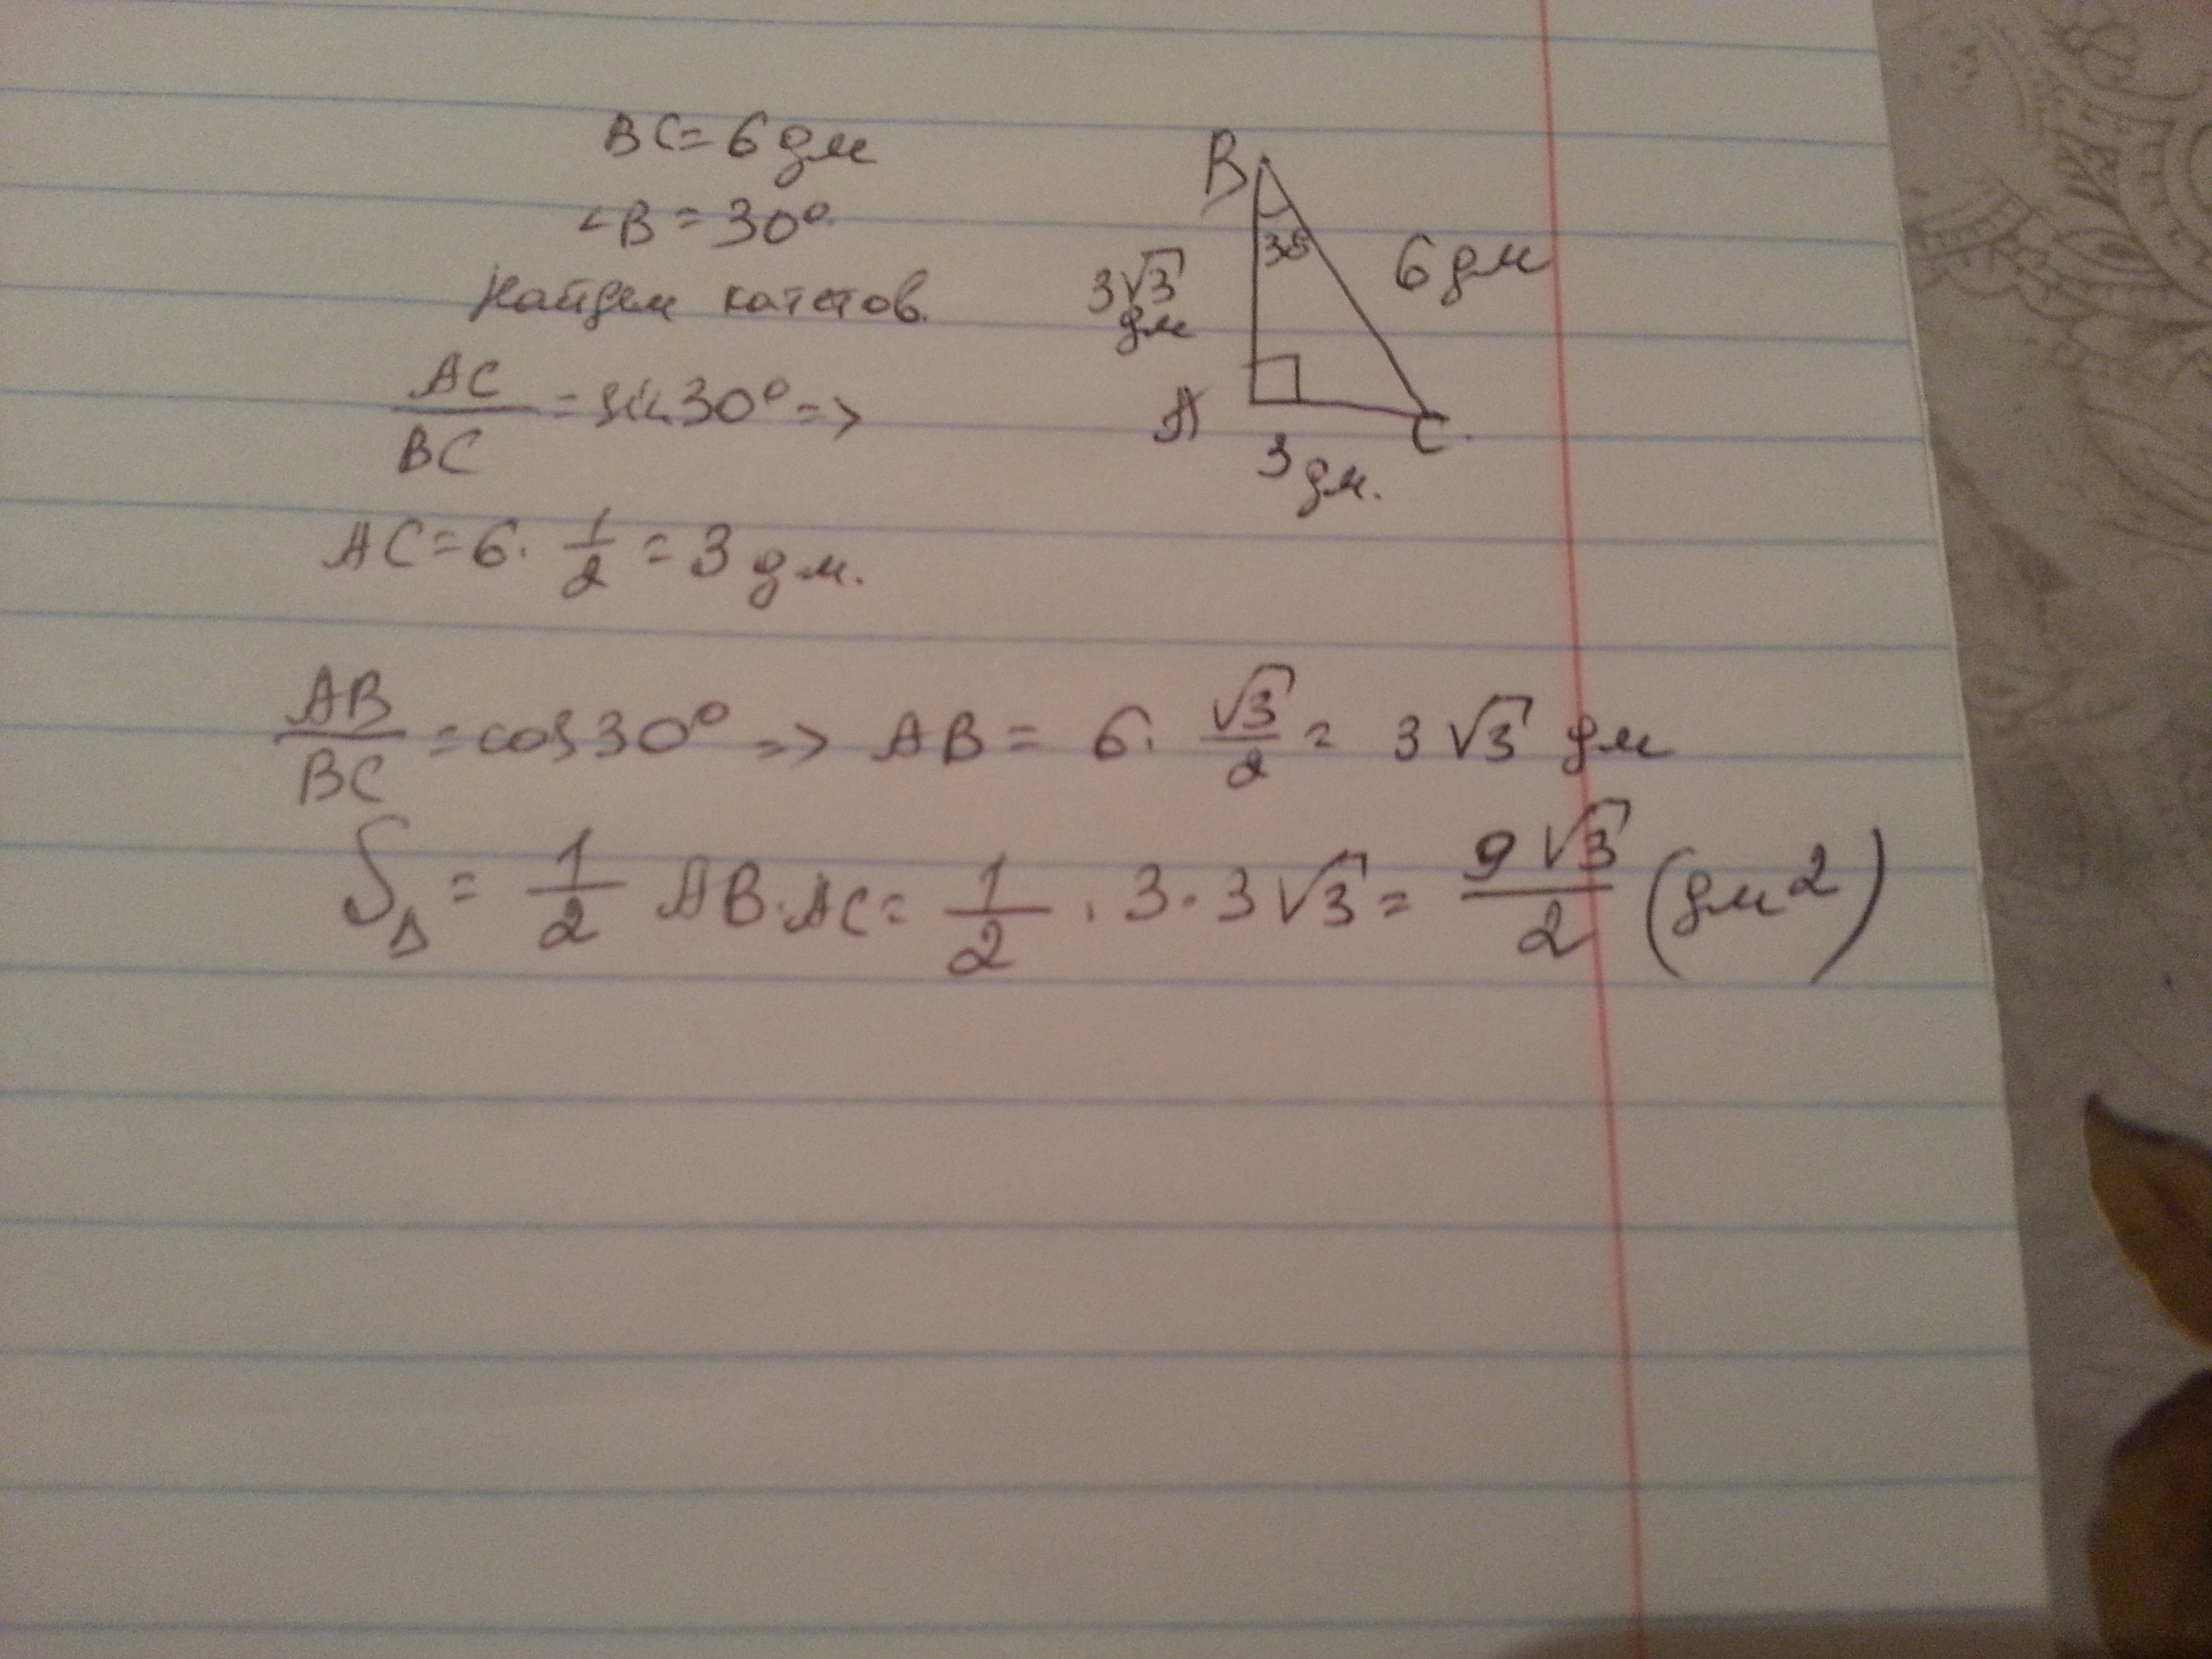 BC = 6 дм
∠B = 30°
Найдем катетов.
AC/BC = sin 30° =>
AC = 6 · 1/2 = 3 дм.
B
30°
3√3 дм
6 дм
A
C.
3 дм.
AB/BC = cos 30° => AB = 6 · √3/2 = 3√3 дм
S△ = 1/2 AB · AC = 1/2 · 3 · 3√3 = 9√3/2 (дм²)